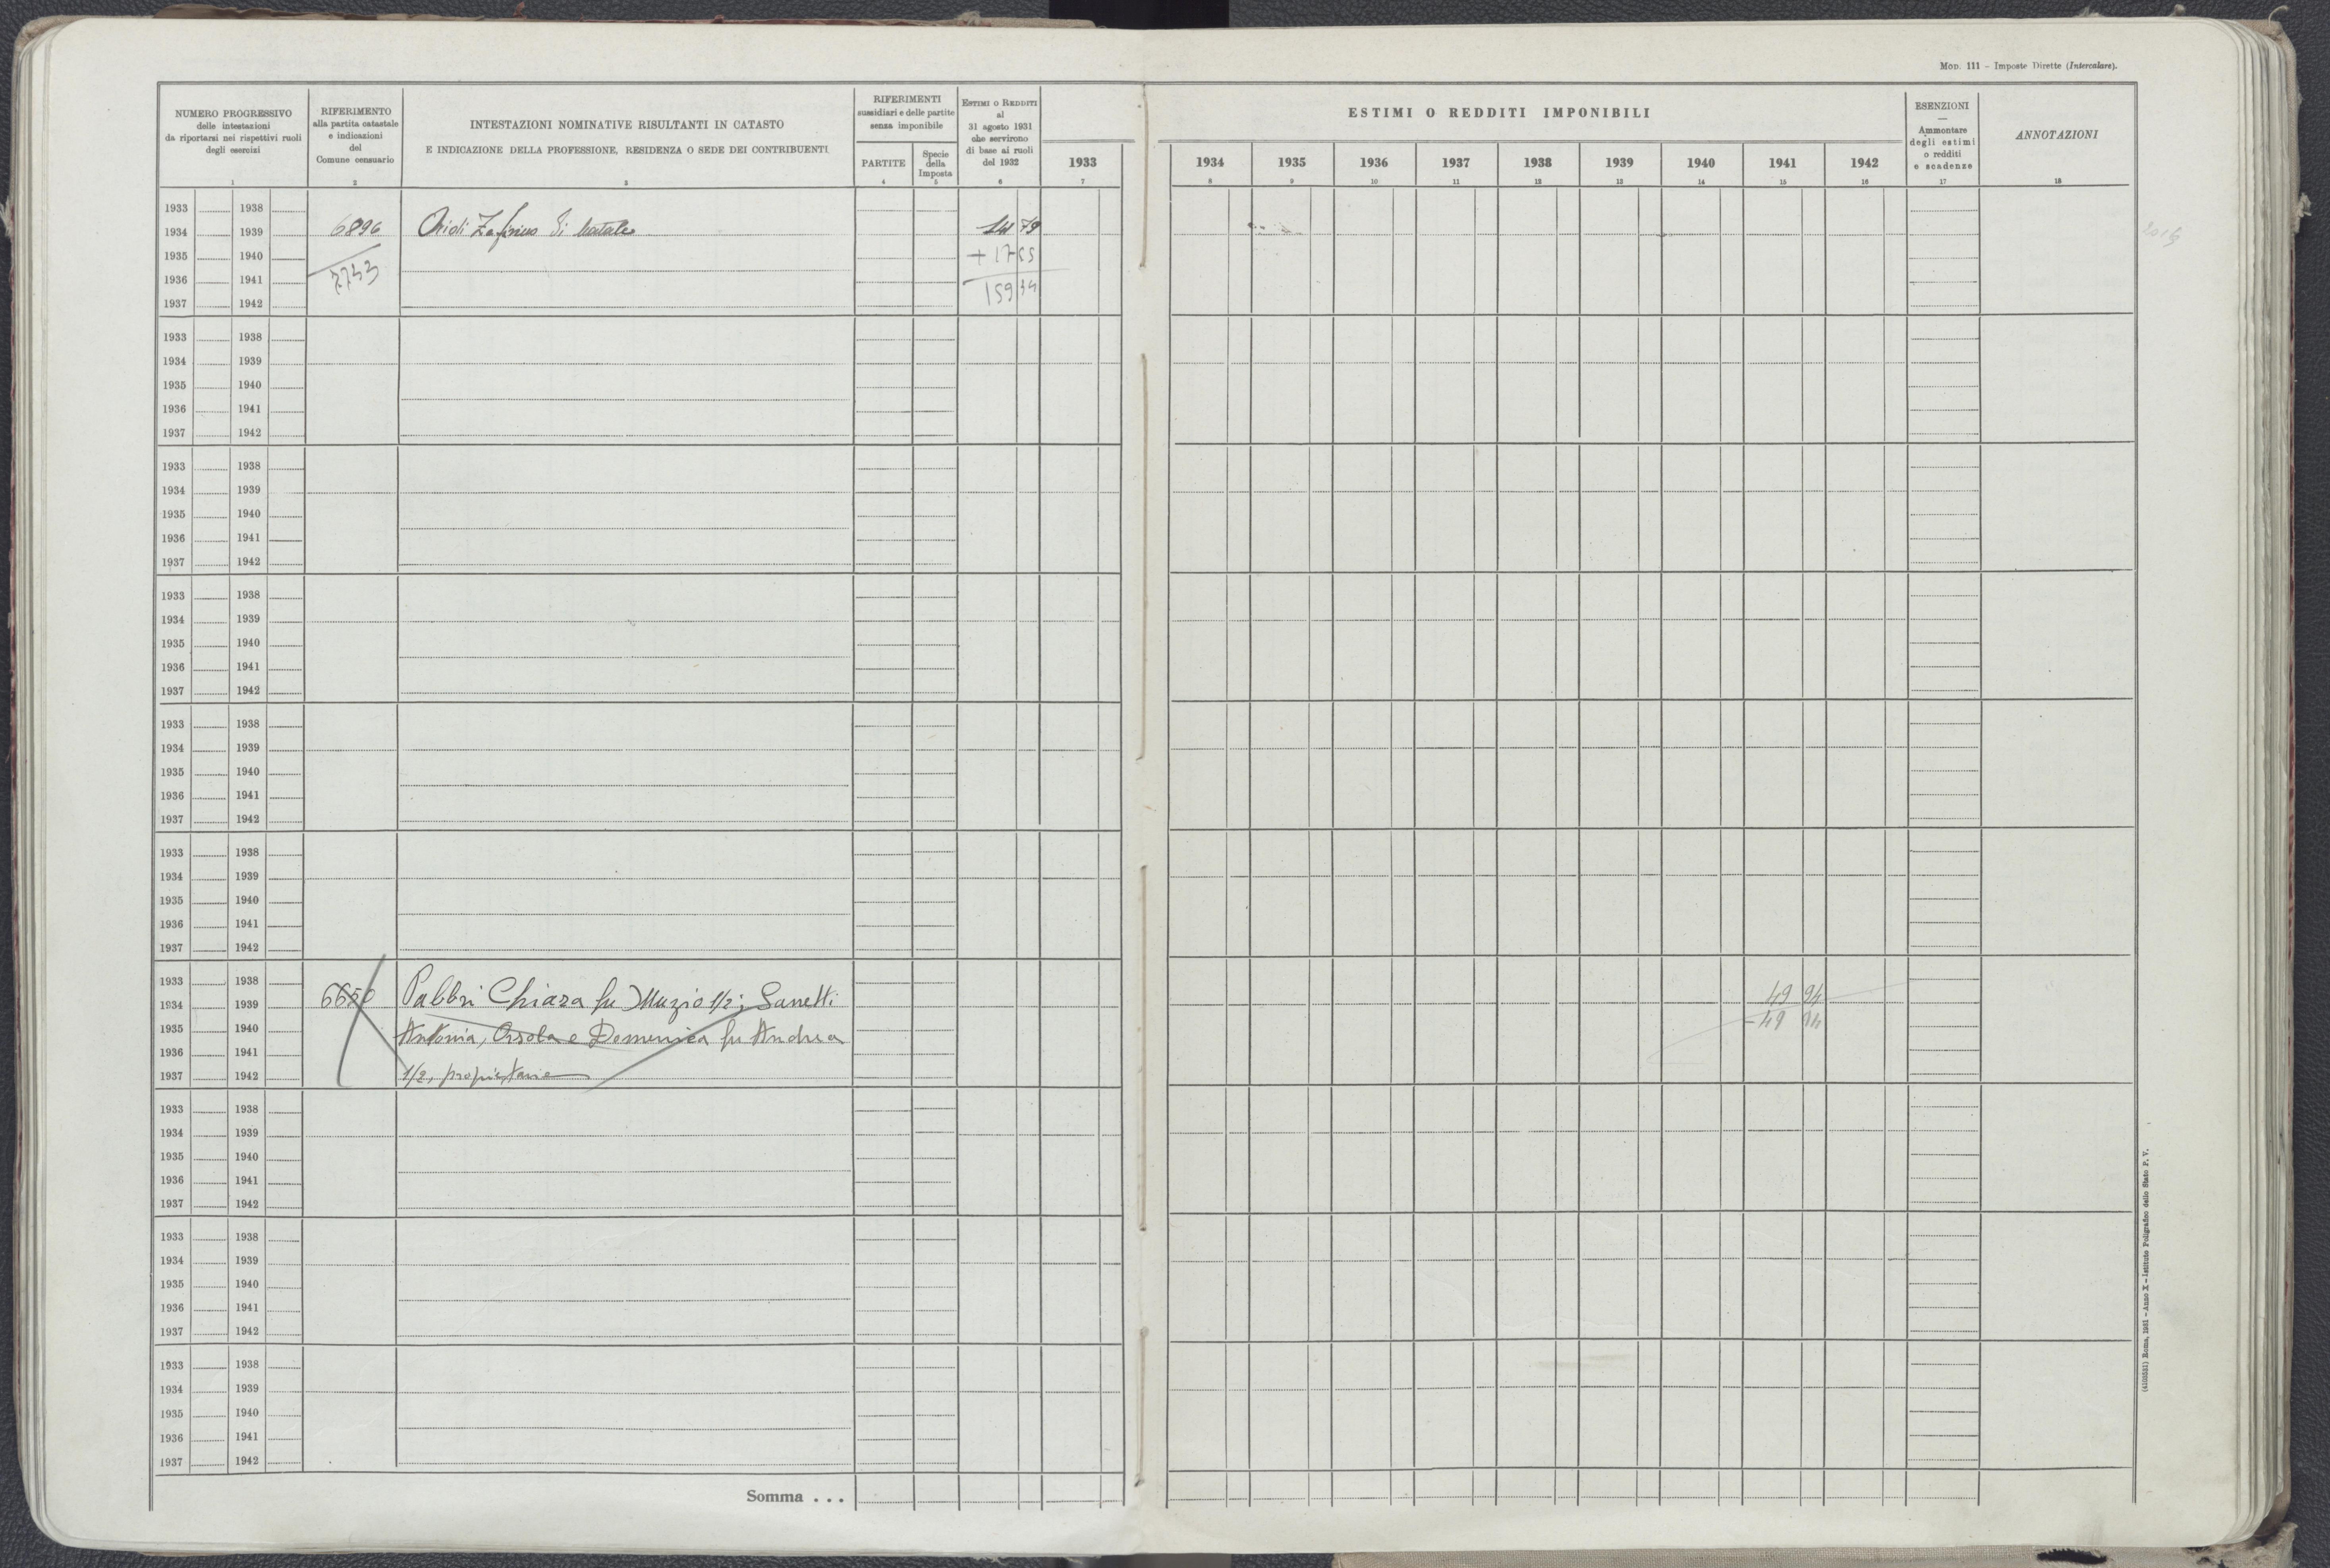 MOD. 111 - Imposte Dirette (Intercalare).
NUMERO PROGRESSIVO
delle intestazioni
da riportarsi nei rispettivi ruoli
degli esercizi
1
RIFERIMENTO
alla partita catastale
e indicazioni
del
Comune censuario
2
INTESTAZIONI NOMINATIVE RISULTANTI IN CATASTO
E INDICAZIONE DELLA PROFESSIONE, RESIDENZA O SEDE DEI CONTRIBUENTI
3
RIFERIMENTI
sussidiari e delle partite
senza imponibile
PARTITE
4
Specie
della
Imposta
5
ESTIMI O REDDITI
al
31 agosto 1931
che servirono
di base ai ruoli
del 1932
6
1933
7
ESTIMI O REDDITI IMPONIBILI
1934 1935 1936 1937 1938 1939 1940 1941 1942
8 9 10 11 12 13 14 15 16
ESENZIONI
—
Ammontare
degli estimi
o redditi
e scadenze
17
ANNOTAZIONI
18
1933 1938
1934 1939 6896 di Natale
1935 1940 + 17 65
1936 1941 7733
1937 1942 159 34
1933 1938
1934 1939
1935 1940
1936 1941
1937 1942
1933 1938
1934 1939
1935 1940
1936 1941
1937 1942
1933 1938
1934 1939
1935 1940
1936 1941
1937 1942
1933 1938
1934 1939
1935 1940
1936 1941
1937 1942
1933 1938
1934 1939
1935 1940
1936 1941
1937 1942
1933 1938
1934 1939 6650 Fabbri Chiara fu Muzio 1/2; Sanetti 49 94
1935 1940 Antonia, Orsola e Domenica fu Andrea - 49 94
1936 1941
1937 1942 1/2, proprietarie
1933 1938
1934 1939
1935 1940
1936 1941
1937 1942
1933 1938
1934 1939
1935 1940
1936 1941
1937 1942
1933 1938
1934 1939
1935 1940
1936 1941
1937 1942
Somma . . .
(4103551) Roma, 1931 - Anno X - Istituto Poligrafico dello Stato P. V.